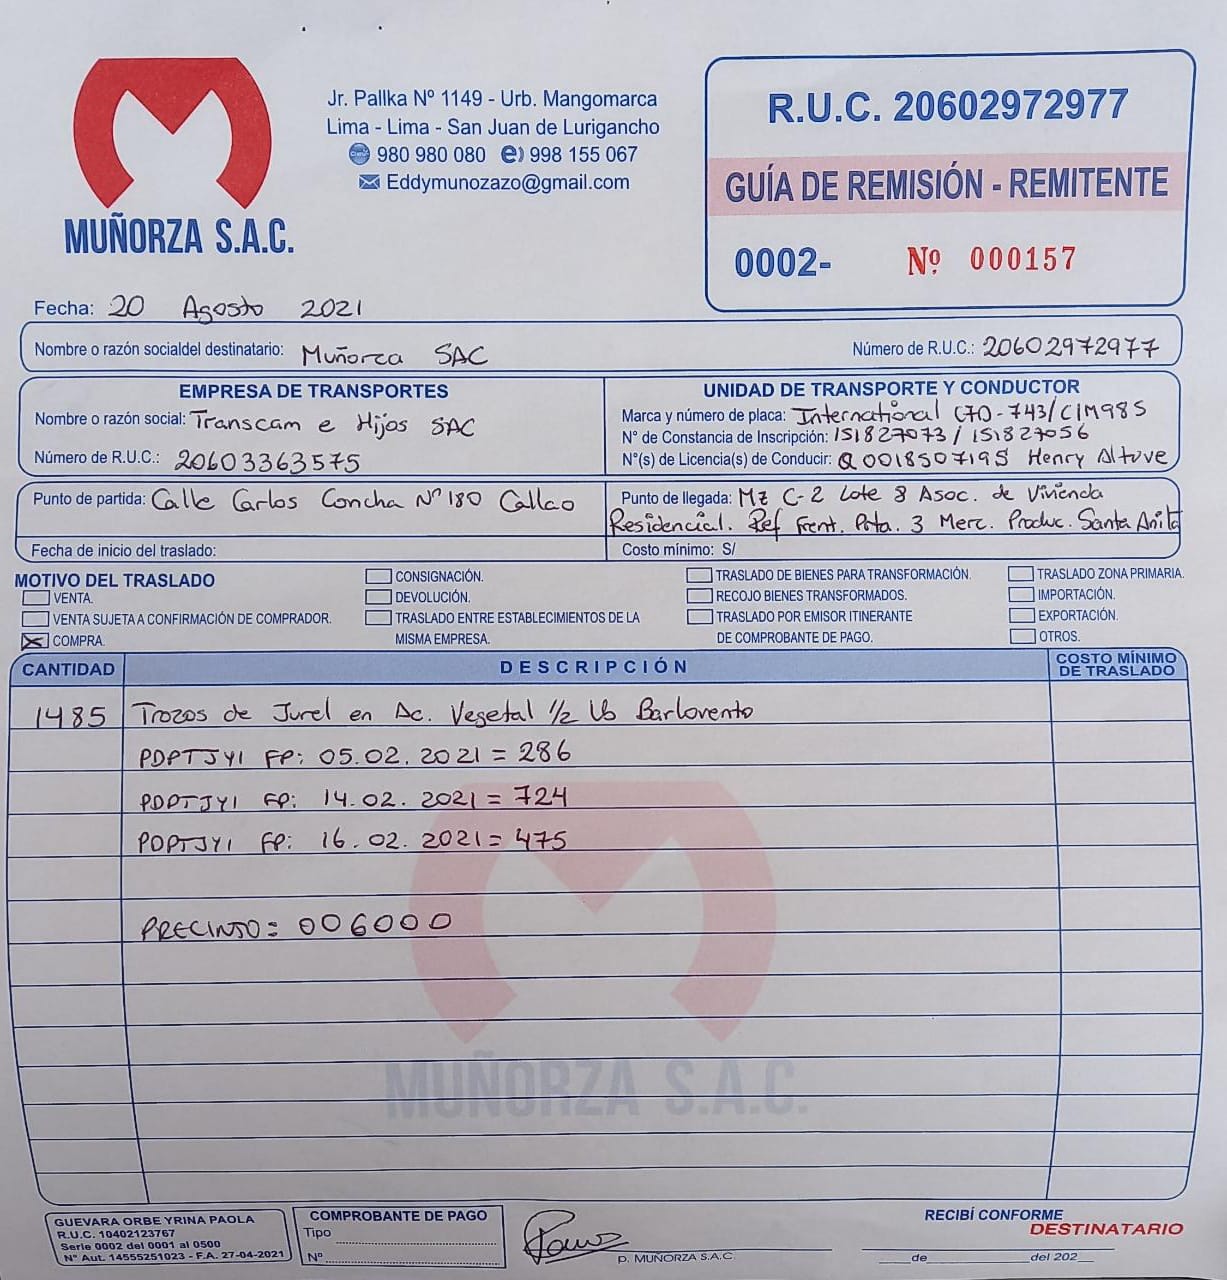 MUÑORZA S.A.C.
Jr. Pallka Nº 1149 - Urb. Mangomarca
Lima - Lima - San Juan de Lurigancho
980 980 080 e) 998 155 067
Eddymunozazo@gmail.com
R.U.C. 20602972977
GUÍA DE REMISIÓN - REMITENTE
0002- Nº 000157
Fecha: 20 Agosto 2021
Nombre o razón socialdel destinatario: Muñorza SAC Número de R.U.C.: 20602972977
EMPRESA DE TRANSPORTES
Nombre o razón social: Transcam e Hijos SAC
Número de R.U.C.: 20603363575
UNIDAD DE TRANSPORTE Y CONDUCTOR
Marca y número de placa: International C7O-743/C1M985
N° de Constancia de Inscripción: 151827073 / 151827056
N°(s) de Licencia(s) de Conducir: Q 0018507195 Henry Altuve
Punto de partida: Calle Carlos Concha Nº 180 Callao
Fecha de inicio del traslado:
Punto de llegada: Mz C-2 Lote 8 Asoc. de Vivienda
Residencial. Ref Frent. Prta. 3 Merc. Produc. Santa Anita
Costo mínimo: S/
MOTIVO DEL TRASLADO
VENTA.
VENTA SUJETA A CONFIRMACIÓN DE COMPRADOR.
COMPRA.
CONSIGNACIÓN.
DEVOLUCIÓN.
TRASLADO ENTRE ESTABLECIMIENTOS DE LA
MISMA EMPRESA.
TRASLADO DE BIENES PARA TRANSFORMACIÓN.
RECOJO BIENES TRANSFORMADOS.
TRASLADO POR EMISOR ITINERANTE
DE COMPROBANTE DE PAGO.
TRASLADO ZONA PRIMARIA.
IMPORTACIÓN.
EXPORTACIÓN.
OTROS.
CANTIDAD DESCRIPCIÓN COSTO MÍNIMO
DE TRASLADO
1485 Trozos de Jurel en Ac. Vegetal 1/2 Lb Barlovento
PDPTJY1 FP: 05.02.2021 = 286
PDPTJY1 FP: 14.02.2021 = 724
PDPTJY1 FP: 16.02.2021 = 475
PRECINTO = 006000
MUÑORZA S.A.C.
GUEVARA ORBE YRINA PAOLA
R.U.C. 10402123767
Serie 0002 del 0001 al 0500
N° Aut. 14555251023 - F.A. 27-04-2021
COMPROBANTE DE PAGO
Tipo
Nº
p. MUÑORZA S.A.C.
RECIBÍ CONFORME
DESTINATARIO
de del 202